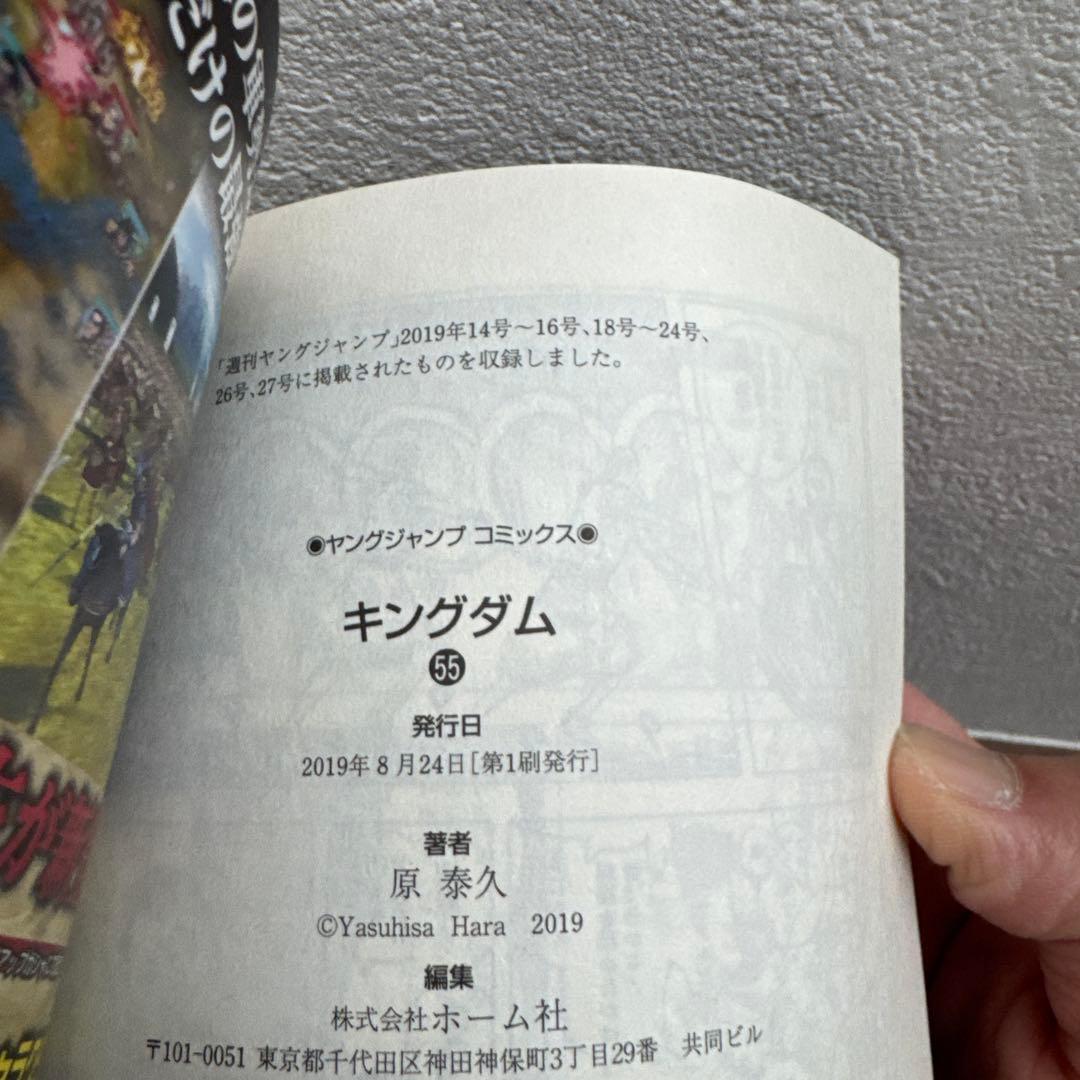 「週刊ヤングジャンプ」2019年14号〜16号、18号〜24号、
26号、27号に掲載されたものを収録しました。
◉ヤングジャンプ コミックス◉
キングダム
55
発行日
2019年8月24日[第1刷発行]
著者
原 泰久
©Yasuhisa Hara 2019
編集
株式会社ホーム社
〒101-0051 東京都千代田区神田神保町3丁目29番 共同ビル